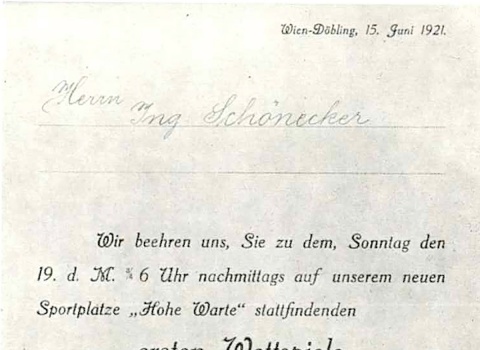 Wien-Döbling, 15. Juni 1921.
Herrn
Ing Schönecker
Wir beehren uns, Sie zu dem, Sonntag den
19. d. M. 6 Uhr nachmittags auf unserem neuen
Sportplatze „Hohe Warte“ stattfindenden
ersten Wettspiele